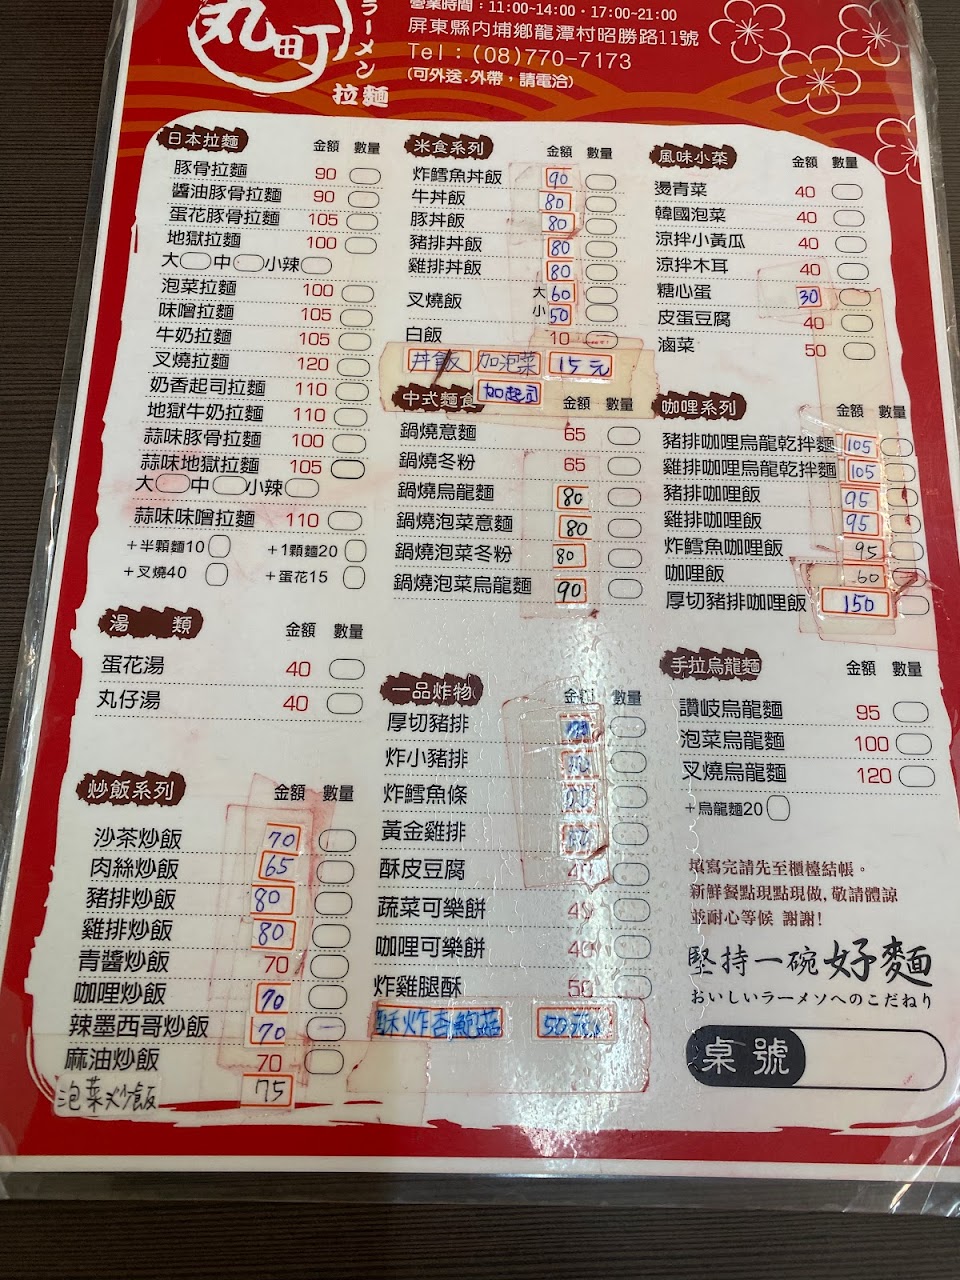 丸田町
ラーメン
拉麵
營業時間：11:00~14:00・17:00~21:00
屏東縣內埔鄉龍潭村昭勝路11號
Tel：(08)770-7173
(可外送.外帶，請電洽)
日本拉麵 金額 數量
豚骨拉麵 90
醬油豚骨拉麵 90
蛋花豚骨拉麵 105
地獄拉麵 100
大 中 小辣
泡菜拉麵 100
味噌拉麵 105
牛奶拉麵 105
叉燒拉麵 120
奶香起司拉麵 110
地獄牛奶拉麵 110
蒜味豚骨拉麵 100
蒜味地獄拉麵 105
大 中 小辣
蒜味味噌拉麵 110
+半顆麵10 +1顆麵20
+叉燒40 +蛋花15
湯 類 金額 數量
蛋花湯 40
丸仔湯 40
炒飯系列 金額 數量
沙茶炒飯 70
肉絲炒飯 65
豬排炒飯 80
雞排炒飯 80
青醬炒飯 70
咖哩炒飯 70
辣墨西哥炒飯 70
麻油炒飯 70
泡菜炒飯 75
米食系列 金額 數量
炸鱈魚丼飯 90
牛丼飯 80
豚丼飯 80
豬排丼飯 80
雞排丼飯 80
叉燒飯 大 60
小 50
白飯 10
丼飯 加泡菜 15元
加起司
中式麵食 金額 數量
鍋燒意麵 65
鍋燒冬粉 65
鍋燒烏龍麵 80
鍋燒泡菜意麵 80
鍋燒泡菜冬粉 80
鍋燒泡菜烏龍麵 90
一品炸物 金額 數量
厚切豬排
炸小豬排
炸鱈魚條
黃金雞排
酥皮豆腐 40
蔬菜可樂餅 40
咖哩可樂餅 40
炸雞腿酥 50
酥炸杏鮑菇 50元
風味小菜 金額 數量
燙青菜 40
韓國泡菜 40
涼拌小黃瓜 40
涼拌木耳 40
糖心蛋 30
皮蛋豆腐 40
滷菜 50
咖哩系列 金額 數量
豬排咖哩烏龍乾拌麵 105
雞排咖哩烏龍乾拌麵 105
豬排咖哩飯 95
雞排咖哩飯 95
炸鱈魚咖哩飯 95
咖哩飯 60
厚切豬排咖哩飯 150
手拉烏龍麵 金額 數量
讚岐烏龍麵 95
泡菜烏龍麵 100
叉燒烏龍麵 120
+烏龍麵20
填寫完請先至櫃檯結帳。
新鮮餐點現點現做,敬請體諒
並耐心等候 謝謝!
堅持一碗好麵
おいしいラーメソへのこだねり
桌號